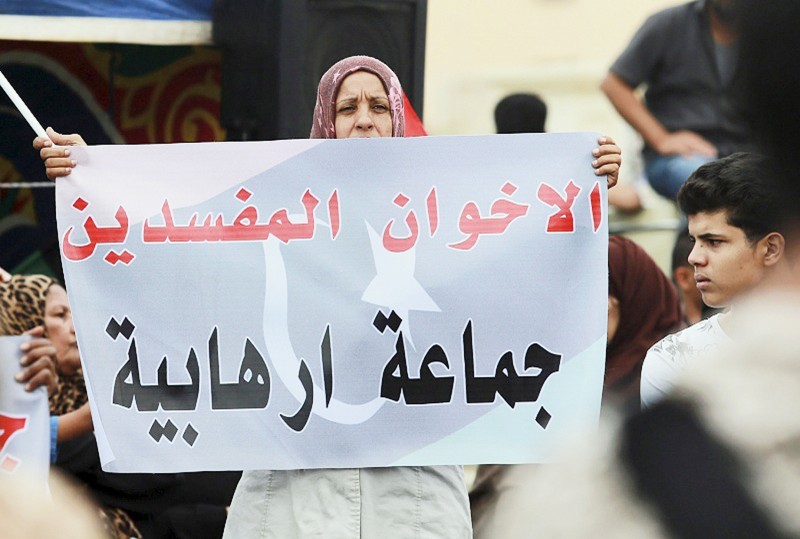 الاخوان المفسدين
جماعة ارهابية